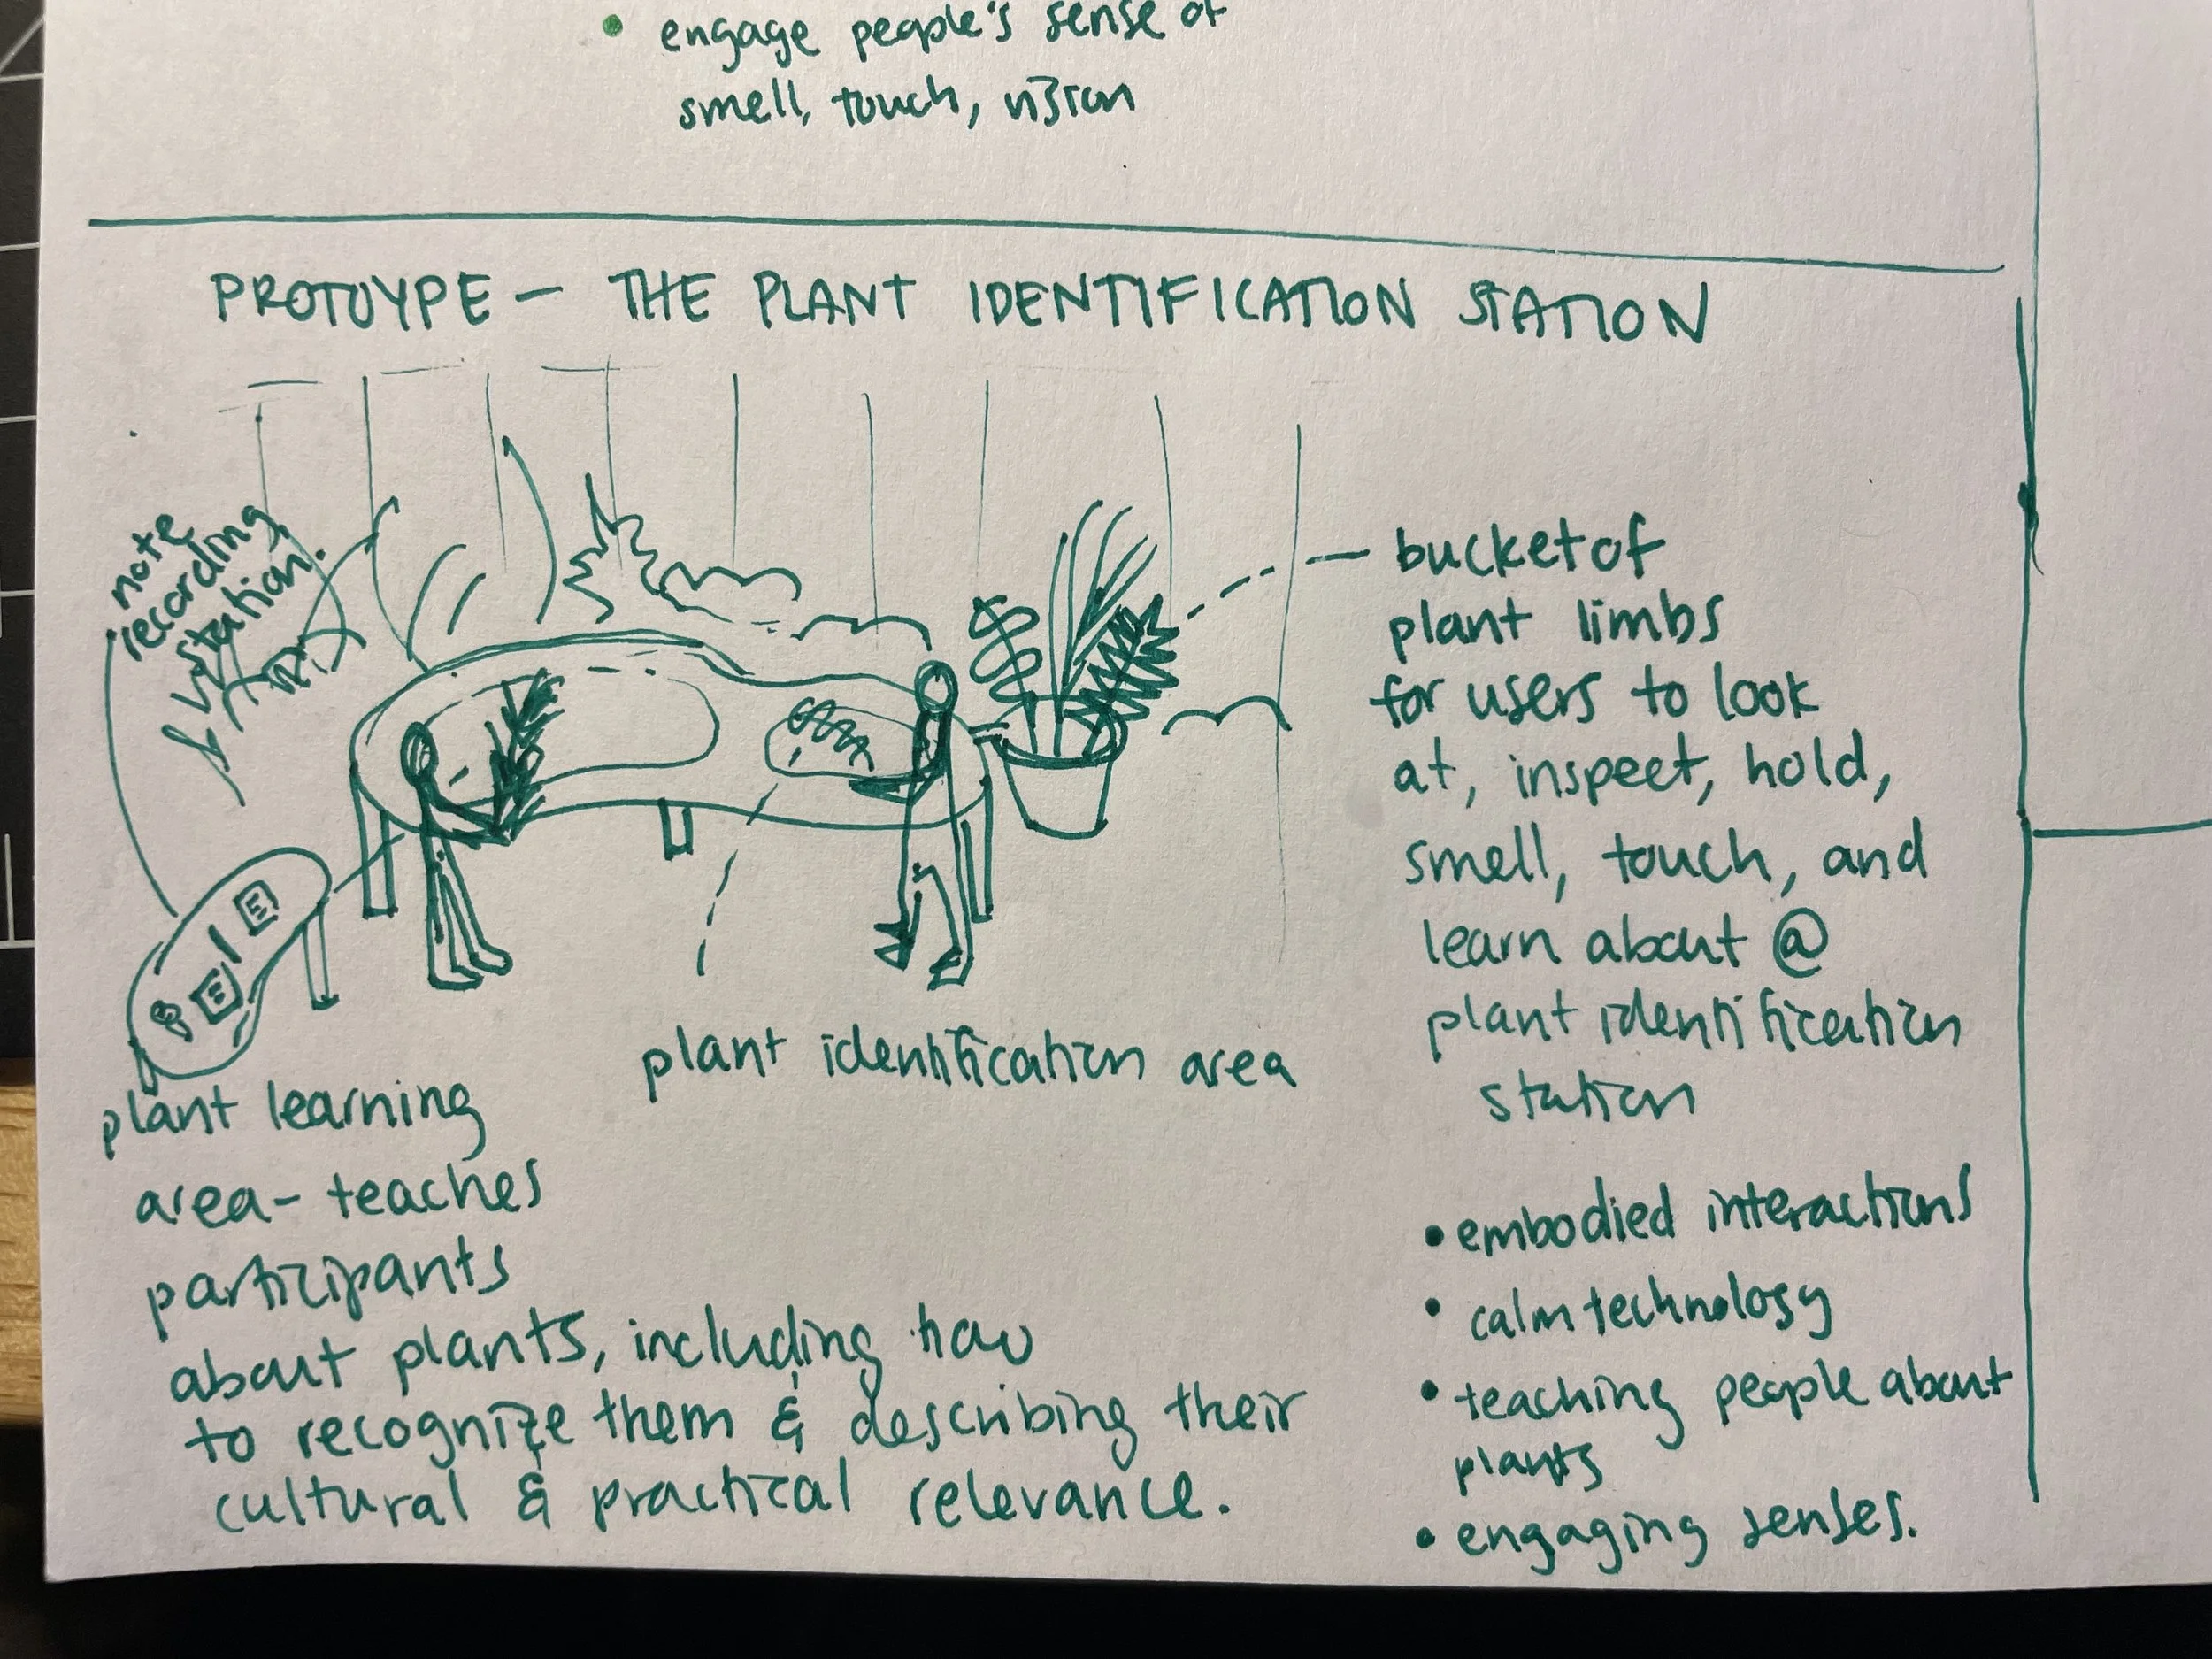 • engage people's sense of
smell, touch, vision
PROTOYPE – THE PLANT IDENTIFICATION STATION
note
recording
station.
bucket of
plant limbs
for users to look
at, inspect, hold,
smell, touch, and
learn about @
plant identification
station
plant identification area
plant learning
area - teaches
participants
about plants, including how
to recognize them & describing their
cultural & practical relevance.
• embodied interactions
• calm technology
• teaching people about
plants
• engaging senses.